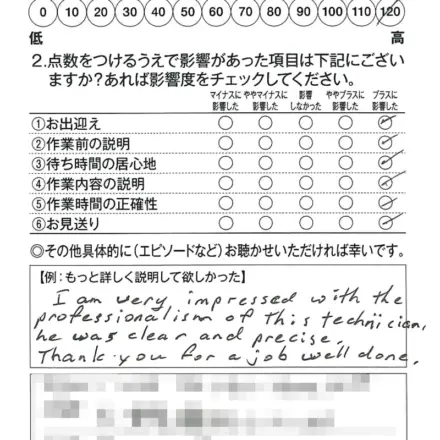 0 10 20 30 40 50 60 70 80 90 100 110 120
低 高
2.点数をつけるうえで影響があった項目は下記にござい
ますか？あれば影響度をチェックしてください。
マイナスに ややマイナスに 影響 ややプラスに プラスに
影響した 影響した しなかった 影響した 影響した
①お出迎え
②作業前の説明
③待ち時間の居心地
④作業内容の説明
⑤作業時間の正確性
⑥お見送り
◎その他具体的に（エピソードなど）お聴かせいただければ幸いです。
【例：もっと詳しく説明して欲しかった】
I am very impressed with the
professionalism of this technician,
he was clear and precise.
Thank you for a job well done.